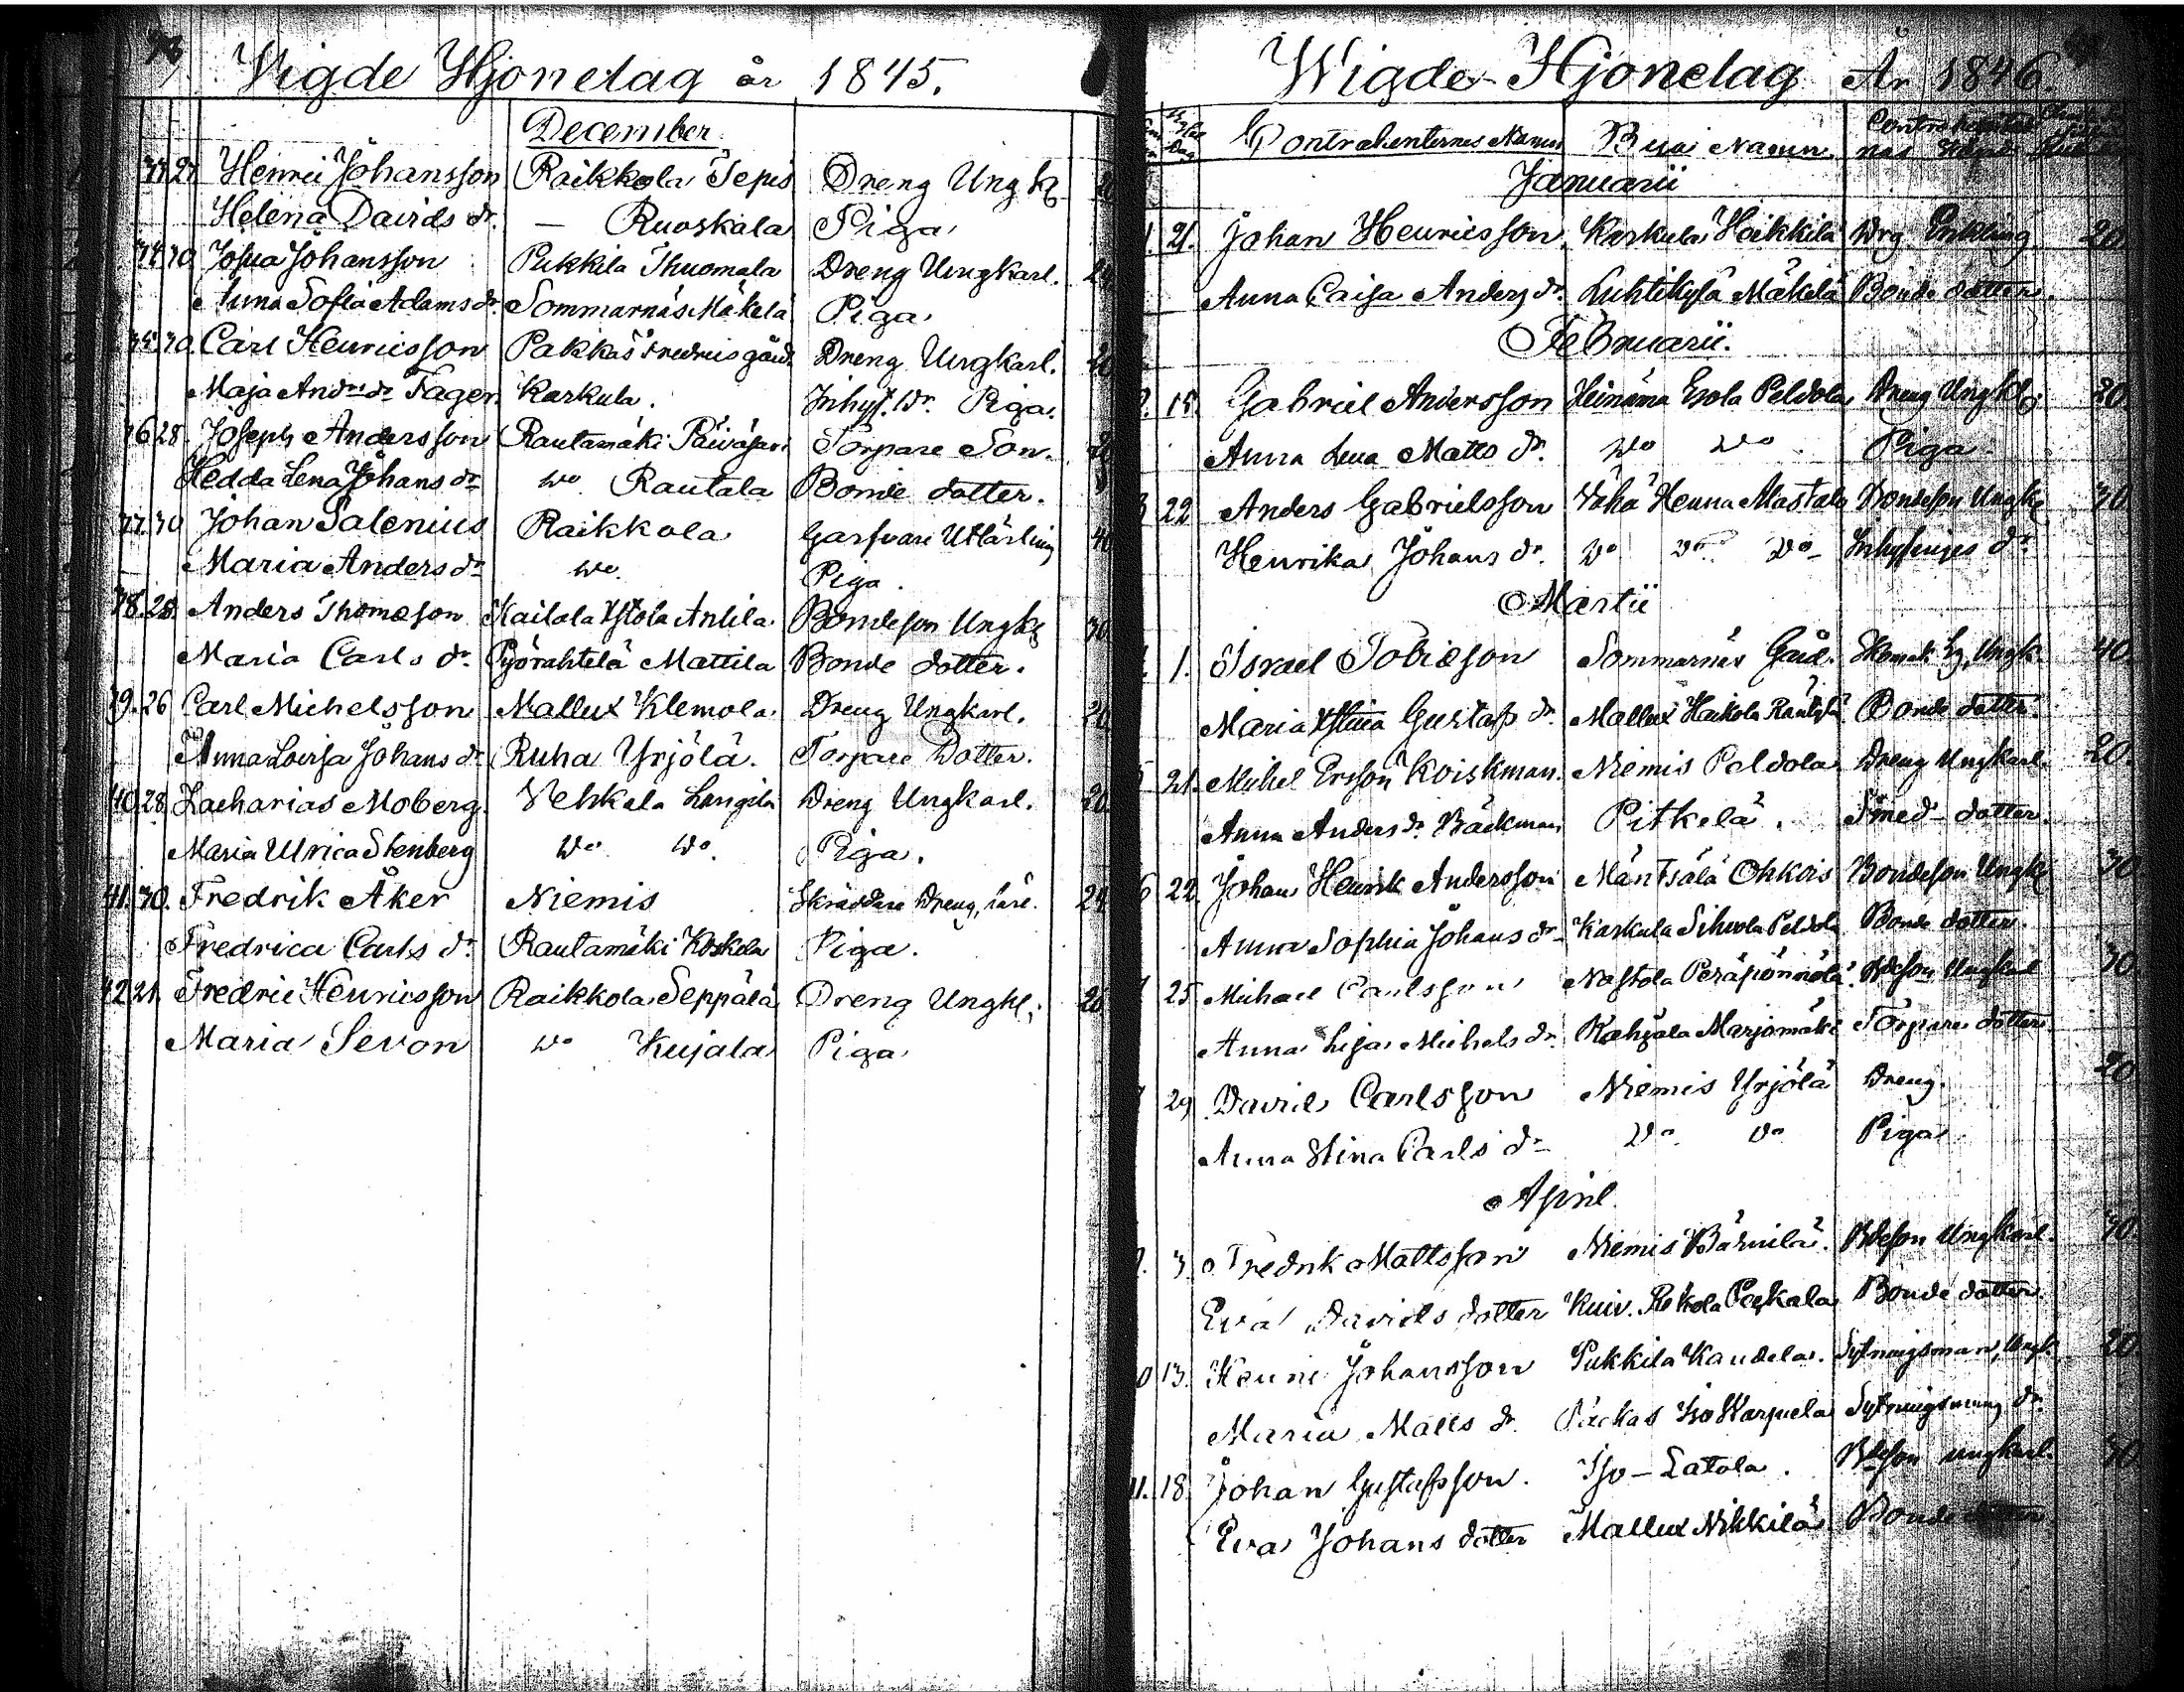 Vigde Hjonelag år 1845.
December
33. 27. Henric Johansson Raikkola Sepis Dreng Ungk
Helena Davids dr. — Ruoskala Piga
34. 30 Josua Johansson Pukkila Thuomala Dreng Ungkarl. 20
Anna Sofia Adams dr. Sommarnäs Mäkelä Piga
35. 30. Carl Henricsson Pakkas Fredriis gård. Dreng Ungkarl. 20
Maja Andrs dr Fager. Karkula. Inhys. Dr. Piga.
36 28. Joseph Andersson Rautamäki Päiväsari Torpare Son. 20
Hedda Lena Johans dr do Rautala Bonde dotter.
37. 30 Johan Salenius Raikkola Garfvare Utlärling 40
Maria Anders dr do. Piga.
38. 28. Anders Thomasson Kailola Ystola Antila. Bondeson Ungk 30
Maria Carls dr. Pyörähtelä Mattila Bonde dotter.
39. 26 Carl Michelsson Mallux Klemola. Dreng Ungkarl. 20
Anna Lovisa Johans dr Ruha Yrjölä. Torpare Dotter.
40. 28. Zacharias Moberg. Vehkala Dreng Ungkarl. 20
Maria Ulrica Stenberg do do. Piga.
41. 30. Fredrik Åker Niemis Skräddare Dreng, 24
Fredrica Carls dr. Rautamäki Koskela Piga.
42. 21. Fredric Henricsson Raikkola Seppälä Dreng Ungkl. 20
Maria Sevon do Kujala Piga
Wigde Hjonelag År 1846.
Contrahenternes Namn Byai Namn.
Januarii
1. 21. Johan Henricsson Karkula Heikkilä Drg Enkling 20
Anna Caisa Anders dr. Luhtikylä Mäkelä Bonde dotter.
Februarii.
2. 15. Gabriel Andersson Heinäma Esola Peldola Dreng Ungkl. 20.
Anna Lena Matts dr. do do Piga
3 22 Anders Gabrielsson Vähä Henna Mastala Bondeson Ungk 30
Henrika Johans dr. do do do Inhysinges dr
Martii
1. Israel Tobiæson Sommarnäs Gård. Ungk. 40.
Maria Stina Gustafs dr. Mallux Haikola Bonde dotter.
5 21. Michel Ersson Koiskman. Niemis Peldola Dreng Ungkarl. 20.
Anna Anders dr. Bäckman Pitkelä. Smed dotter.
6 22. Johan Henrik Andersson Mäntsälä Ohkois Bondeson Ungk 30
Anna Sophia Johans dr Karkula Sihvola Peldola Bonde dotter.
25 Michael Carlsson Nastola Bdeson Ungkarl 30
Anna Lisa Michels dr. Kahjala Marjamäki Torpare dotter
29 David Carlsson Niemis Yrjölä Dreng. 20
Anna Stina Carls dr do do Piga
April
3. Fredrik Mattsson Niemis Bdeson Ungkarl. 30.
Eva Davids dotter Kuiv. Rekola Peskala Bonde dotter
13. Henric Johansson Pukkila Kaudela. Sytningsman, Ungk. 20
Maria Matts dr. Packas Iso Karpela Sytningsmans dr.
11. 18. Johan Gustafsson. Iso-Latola. Bdeson ungkarl. 30
Eva Johans dotter Mallux Nikkilä Bonde dotter